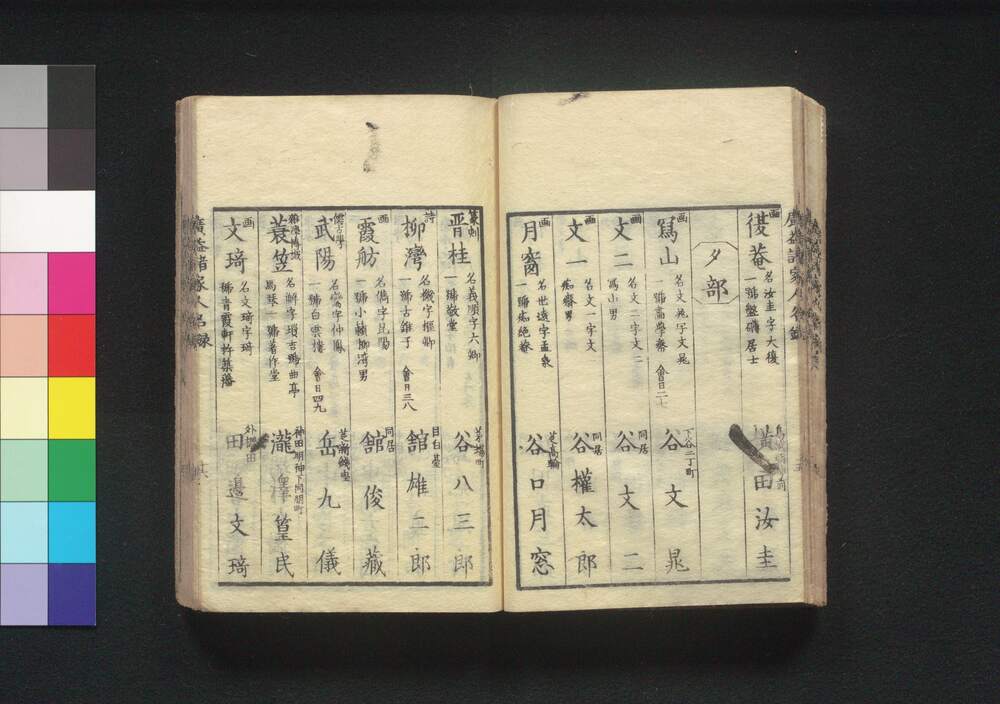 画
復菴
名汝圭字大復
一號盤礴居士
横田汝圭
タ部
画
寫山
名文晁字文晁
一號画学斎 會日二七
下谷二丁町
谷文晁
画
文二
名文二字文二
寫山男
同居
谷文二
画
文一
名文一字文一
痴斎男
同居
谷權太郎
画
月窗
名世達字孟泉
一號痴絶斎
芝高輪
谷口月窓
篆刻
晋桂
名義順字六卿
一號敬堂
茅場町
谷八三郎
詩
柳灣
名機字樞卿
一號古錐子 會日三八
目白臺
舘雄二郎
画
霞舫
名儁字
一號小蘋柳湾男
同居
舘俊藏
武陽
字仲鳳
一號白雲樓 會日四九
芝新錢座
岳九儀
蓑笠
名解字瑣吉號曲亭
馬琴一號著作堂
神田明神下同朋町
瀧澤篁民
画
文琦
名文琦字琦
號青霞軒杵築藩
田邉文琦
廣益諸家人名録
廣益諸家人名録